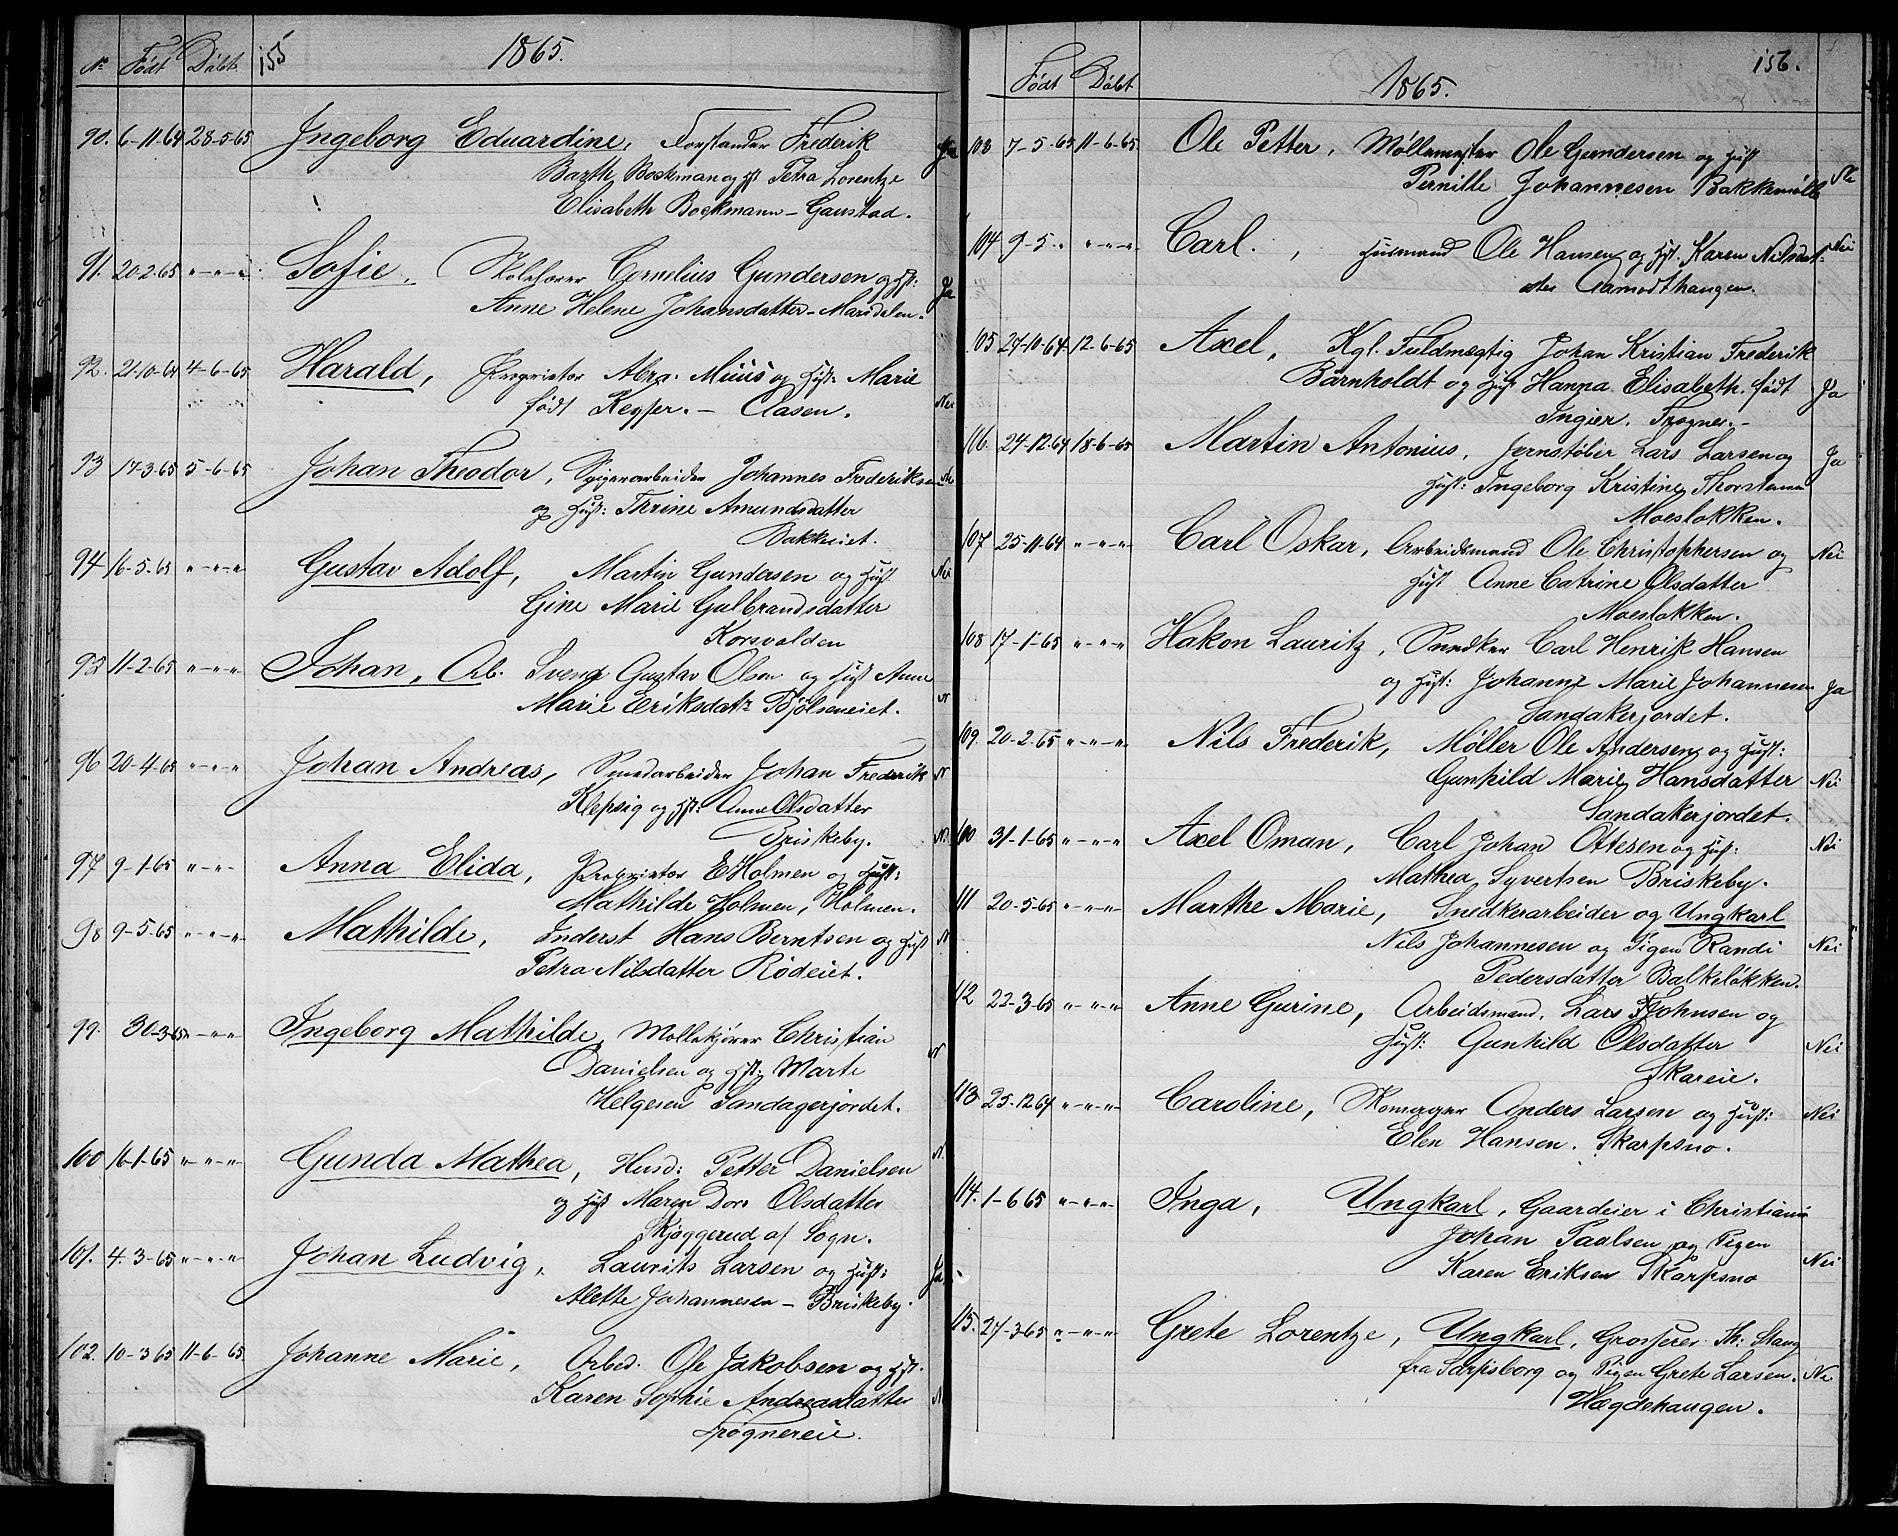 № Født Døbt 155 1865.
90. 6-11-64 28-5-65 Ingeborg Eduardine, Forstander Frederik Ja
Barth Boekman og Hst Petra Lorentze
Elisabeth Boekmann - Gaustad.
91. 20-2-65 "-"-" Sofie, Skolelærer Cornelius Gundersen og Hst: Ja
Anne Helene Johansdatter - Maridalen.
92. 21-10-64 4-6-65 Harald, Proprietær Abra: Muus og Hust: Marie
født Keyser. - Aasen. Nei
93 17-3-65 5-6-65 Johan Theodor, Spigerarbeider Johannes Frederiksen
og Hust: Thrine Amundsdatter
Bakkeiet.
94 16-5-65 "-"-" Gustav Adolf, Martin Gundersen og Hust Nei
Gine Marie Gulbrandsdatter
Korsvolden
95 11-2-65 "-"-" Johan, Arb. Svend Gustav Olsen og Hust Anne
Marie Eriksdatr Bjølseneiet. N
96 20-4-65 "-"-" Johan Andreas, Smedarbeider Johan Frederik N
Klepzig og Hst: Anne Olsdatter
Briskeby. N.
97 9-1-65 "-"-" Anna Elida, Proprietær E Holmen og Hust:
Mathilde Holmen, Holmen.
98 9-5-65 "-"-" Mathilde, Inderst Hans Berntsen og Hust N
Petra Nilsdatter Rødeiet.
99. 30-3-65 "-"-" Ingeborg Mathilde, Møllekjører Christian
Danielsen og Hst: Marte N
Helgesen Sandagerjordet.
100 16-1-65 "-"-" Gunda Mathea, Husd: Petter Danielsen N.
og Hust Maren Dor. Olsdatter
Skjøggerud af Sogn.
101. 4-3-65 "-"-" Johan Ludvig, Laurits Larsen og Hust: Ja
Alette Johannesen - Briskeby.
102. 10-3-65 11-6-65 Johanne Marie, Arbed. Ole Jakobsen og Hst.
Karen Sophie Andreasdatter N
Frognereie.
Født Døbt 1865. 156.
103 7-5-65 11-6-65 Ole Petter, Møllemester Ole Gundersen og Hust
Pernille Johannesen Bakkemølle
104 9-5-" "-"-" Carl., Husmand Ole Hansen og Hst. Karen Nilsdat- Nei
ter Aamodthaugen.
105 24-10-64 12-6-65 Axel, Kgl. Fuldmægtig Johan Kristian Frederik
Barnholdt og Hust Hanna Elisabeth født Ja
Ingier. Frogner. -
116. 24-12-64 18-6-65 Martin Antonius, Jernstøber Lars Larsen og Ja
Hust: Ingeborg Kristine Thorstensen
Moesløkken.
107 25-11-64 "-"-" Carl Oskar, Arbeidsmand Ole Christophersen og Nei
Hust Anne Catrine Olsdatter
Moesløkken.
108 17-1-65 "-"-" Hakon Lauritz, Snedker Carl Henrik Hansen
og Hust: Johanne Marie Johannesen Ja
Sandakerjordet.
109. 20-2-65 "-"-" Nils Frederik, Møller Ole Andersen og Hust:
Gunhild Marie Hansdatter Nei
Sandakerjordet.
31-1-65 "-"-" Axel Oman, Carl Johan Ottesen og Hust: Nei
Mathea Syvertsen Briskeby.
111 20-5-65 "-"-" Marthe Marie, Snedkerarbeider og Ungkarl
Nils Johannesen og Pigen Randi Nei
Pedersdatter Balkeløkken.
12 22-3-65 "-"-" Anne Gurine, Arbeidsmand. Lars Johnsen og
Hust: Gunhild Olsdatter Nei
Skareie.
113. 25-12-64 "-"-" Caroline, Skomager Anders Larsen og Hust: Nei
Elen Hansen. Skarpsno.
114. 1-6 65 "-"-" Inga, Ungkarl, Gaardeier i Christiania
Johan Paulsen og Pigen
Karen Eriksen Skarpsno Nei
115. 27-3-65 "-"-" Grete Lorentze, Ungkarl, Grosserer Th: Stang
fra Sarpsborg og Pigen Grete Larsen. Nei
Hægdehaugen.